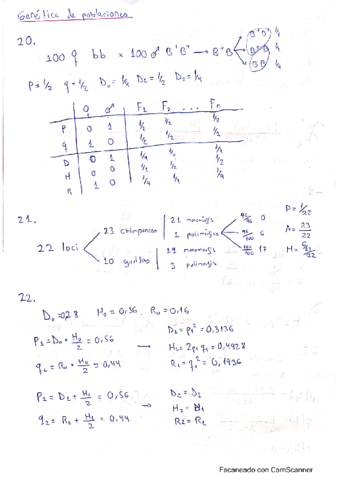 Genética de poblaciones
20.
100 ♀ bb × 100 ♂ B⁺B⁺ → B⁺B
B⁺B⁺ 1/4
B⁺B 1/2
BB 1/4
P = 1/2 q = 1/2 D₀ = 1/4 D₁ = 1/2 D₂ = 1/4
♀ ♂ F₁ F₂ ... Fn
P 0 1 1/2 1/2 1/2
q 1 0 1/2 1/2 1/2
D 0 1 1/4 1/4 1/4
H 0 0 1/2 1/2 1/2
R 1 0 1/4 1/4 1/4
21.
22 loci
23 chimpancés
21
1
10 gorilas
19
3
0
6
17
P = 1/22
A = 23/22
22.
D₀ = 0,28 H₀ = 0,56 R₀ = 0,16
P₁ = D₀ + H₀/2 = 0,56
q₁ = R₀ + H₀/2 = 0,44
→
D₁ = p₁² = 0,3136
H₁ = 2p₁q₁ = 0,4928
R₁ = q₁² = 0,1936
P₂ = D₁ + H₁/2 = 0,56
q₂ = R₁ + H₁/2 = 0,44
→
D₂ = D₁
H₂ = H₁
R₂ = R₁
Escaneado con CamScanner